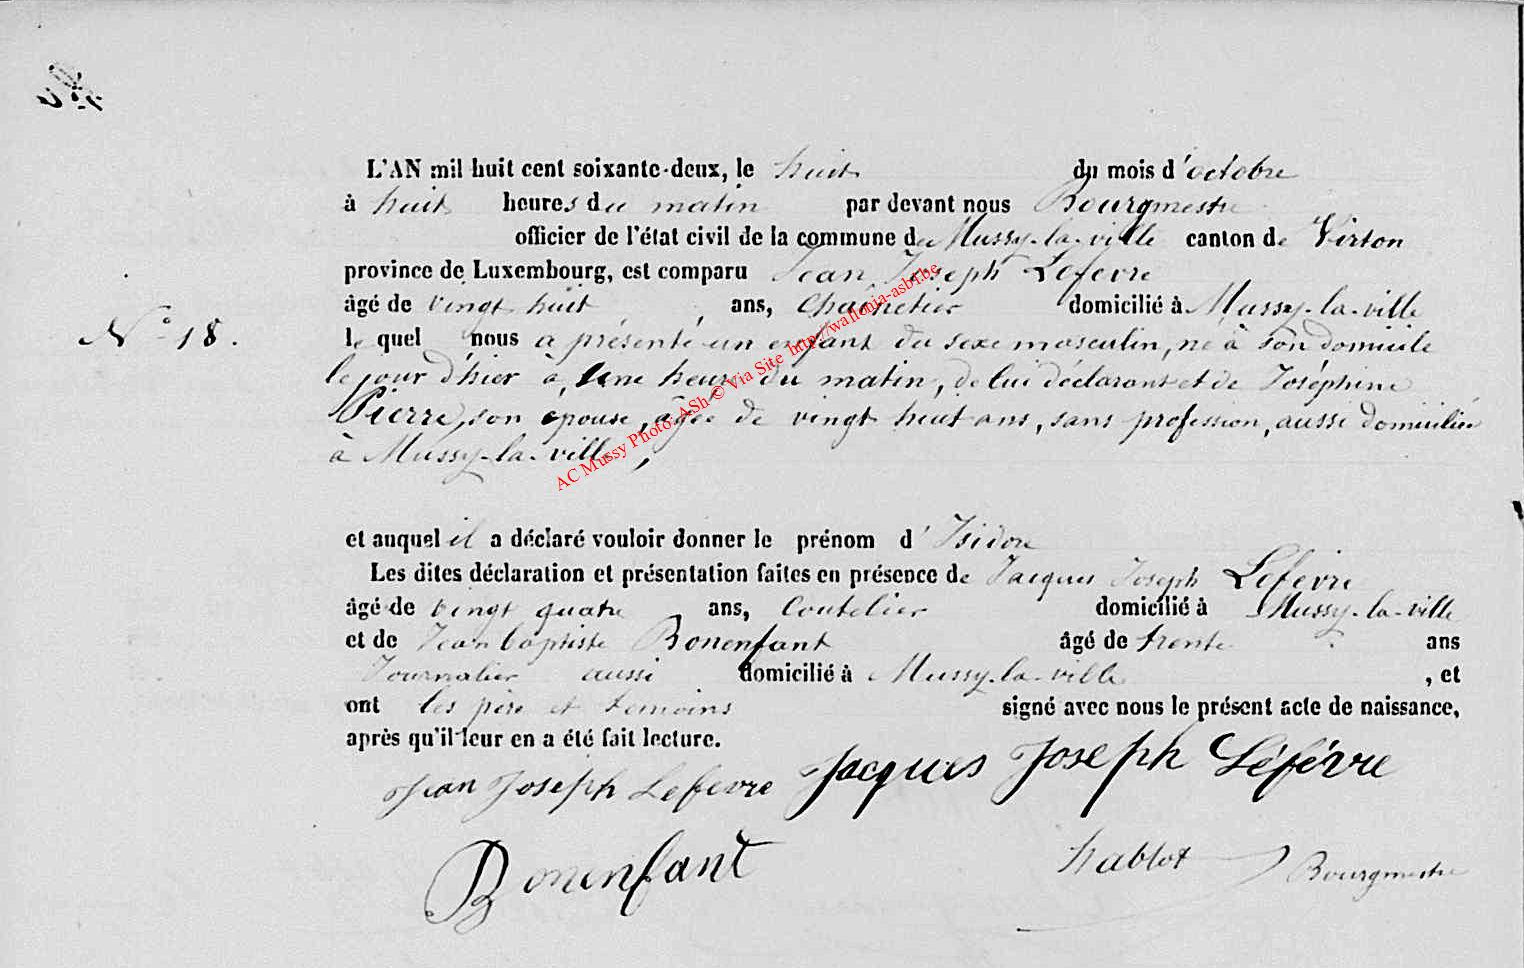 L'AN mil huit cent soixante-deux, le huit du mois d'octobre
à huit heures du matin par devant nous Bourgmestre
officier de l'état civil de la commune de Mussy-la-ville canton de Virton
province de Luxembourg, est comparu Jean Joseph Lefevre
âgé de vingt huit ans, domicilié à Mussy-la-ville
N° 18. le quel nous a présenté un enfant du sexe masculin, né à son domicile
le jour d'hier à une heure du matin, de lui déclarant et de Joséphine
Pierre, son épouse, âgée de vingt huit ans, sans profession, aussi domiciliée
à Mussy-la-ville,
et auquel il a déclaré vouloir donner le prénom d'Isidore
Les dites déclaration et présentation faites en présence de Jacques Joseph Lefèvre
âgé de vingt quatre ans, Coutelier domicilié à Mussy-la-ville
et de Jean baptiste Bonenfant âgé de trente ans
Journalier aussi domicilié à Mussy-la-ville, et
ont les père et temoins signé avec nous le présent acte de naissance,
après qu'il leur en a été fait lecture.
Jean Joseph Lefevre Jacques Joseph Léfévre
Bonenfant hablot Bourgmestre
AC Mussy Photo ASh © Via Site http://wallonia-asbl.be